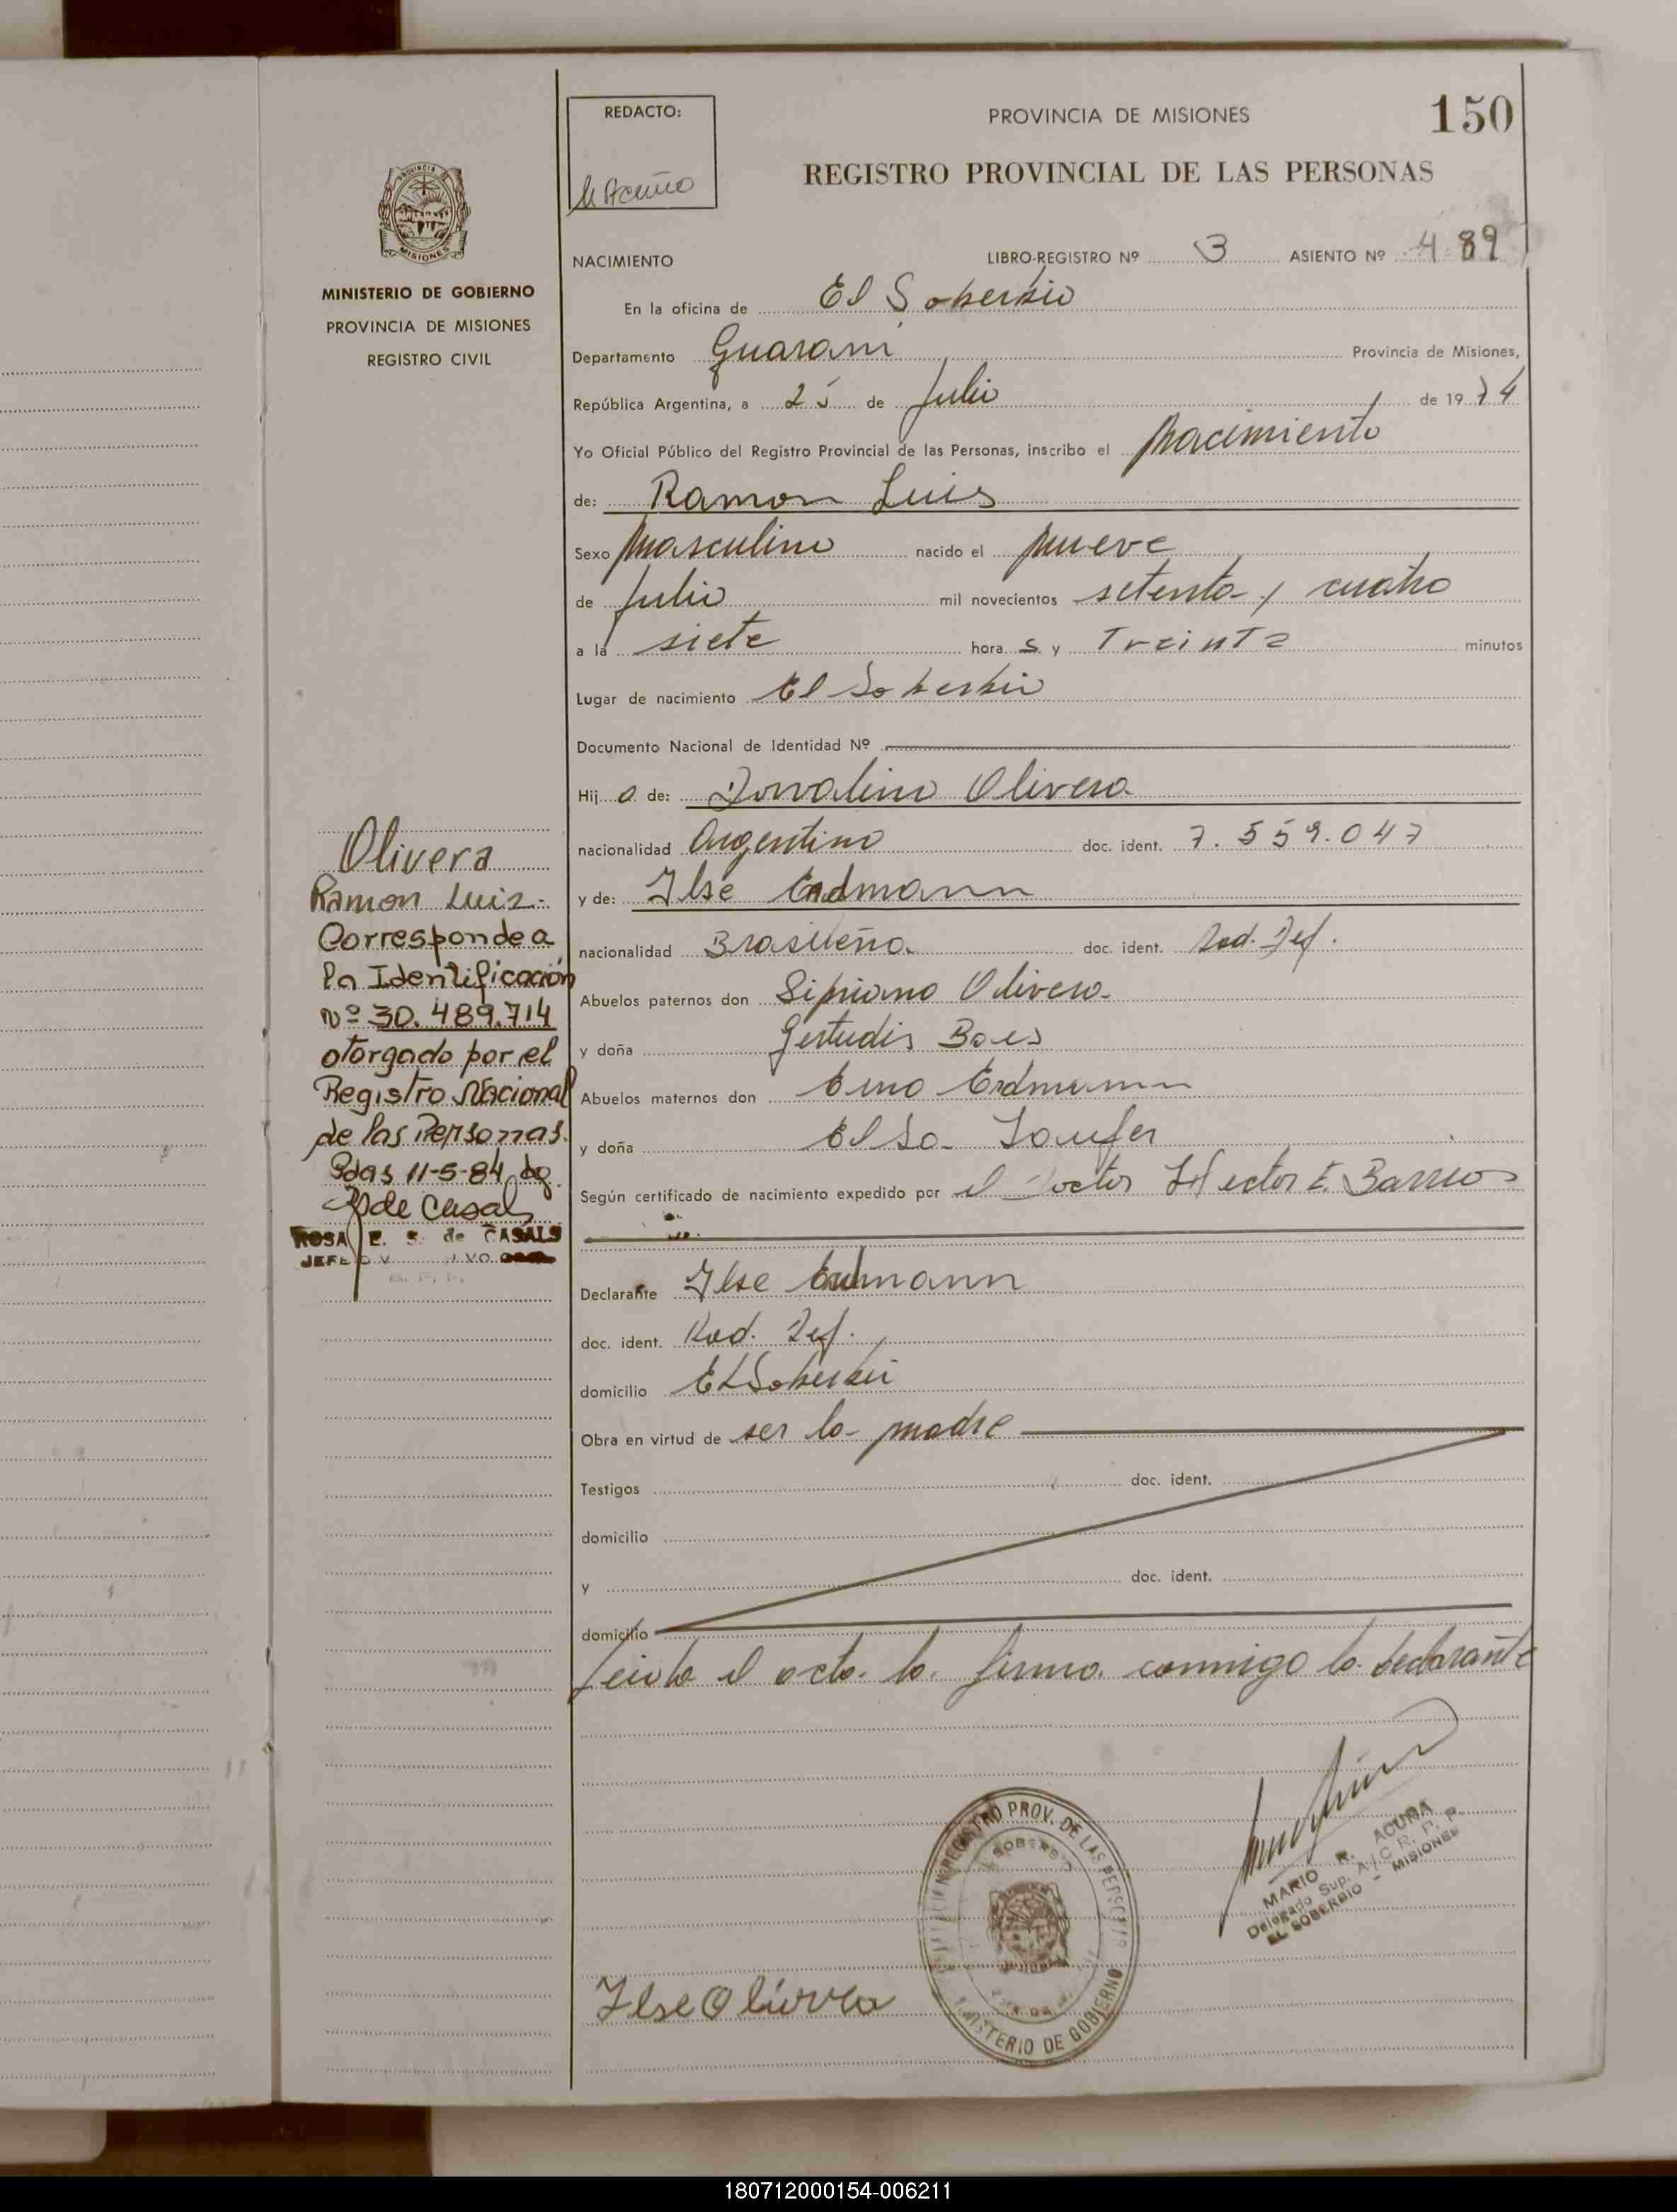 REDACTO:
M Acuña
PROVINCIA DE MISIONES
150
REGISTRO PROVINCIAL DE LAS PERSONAS
NACIMIENTO
LIBRO-REGISTRO Nº 3 ASIENTO Nº 489
En la oficina de El Soberbio
Departamento Guarani Provincia de Misiones,
República Argentina, a 25 de Julio de 1974
Yo Oficial Público del Registro Provincial de las Personas, inscribo el nacimiento
de: Ramon Luis
Sexo Masculino nacido el nueve
de Julio mil novecientos setenta y cuatro
a la siete hora s y Treinta minutos
Lugar de nacimiento El Soberbio
Documento Nacional de Identidad Nº
Hij o de: Dorvalino Olivera
nacionalidad Argentino doc. ident. 7.559.047
y de: Ilse Erdmann
nacionalidad Brasileña doc. ident. Rad. Def.
Abuelos paternos don Sipriano Olivera
y doña Gertudis Baes
Abuelos maternos don Erno Erdmann
y doña Elsa
Según certificado de nacimiento expedido por el Doctor Hector E. Barrios
Declarante Ilse Erdmann
doc. ident. Rad. Def.
domicilio El Soberbio
Obra en virtud de ser la madre
Testigos doc. ident.
domicilio
y doc. ident.
domicilio
Leida el acta la firma conmigo la declarante
MARIO R. ACUÑA
Delegado Sup. A/C R. P. P.
EL SOBERBIO - MISIONES
REGISTRO PROV. DE LAS PERSONAS
SOBERBIO
MINISTERIO DE GOBIERNO
Ilse Olivera
MISIONES
MINISTERIO DE GOBIERNO
PROVINCIA DE MISIONES
REGISTRO CIVIL
Olivera
Ramon Luis.
Corresponde a
la Identificación
Nº 30.489.714
otorgado por el
Registro Nacional
de las Personas.
Pdas 11-5-84 dg.
R de Casals
ROSA E. S. de CASALS
180712000154-006211